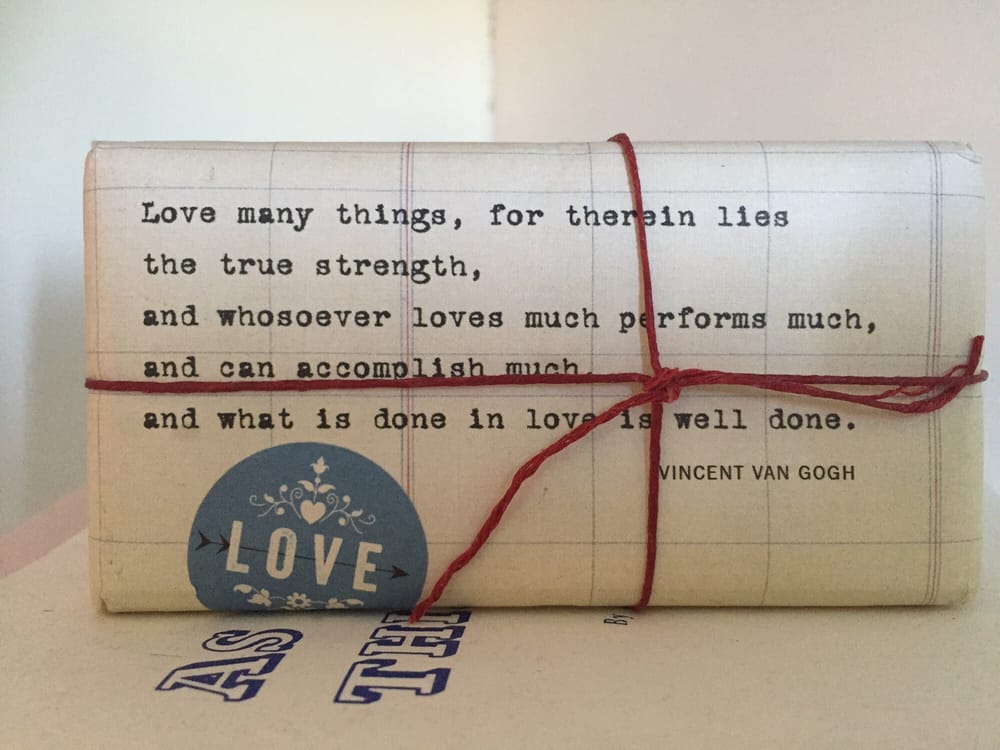 Love many things, for therein lies
the true strength,
and whosoever loves much performs much,
and can accomplish much,
and what is done in love is well done.
VINCENT VAN GOGH
LOVE
AS
THE
By